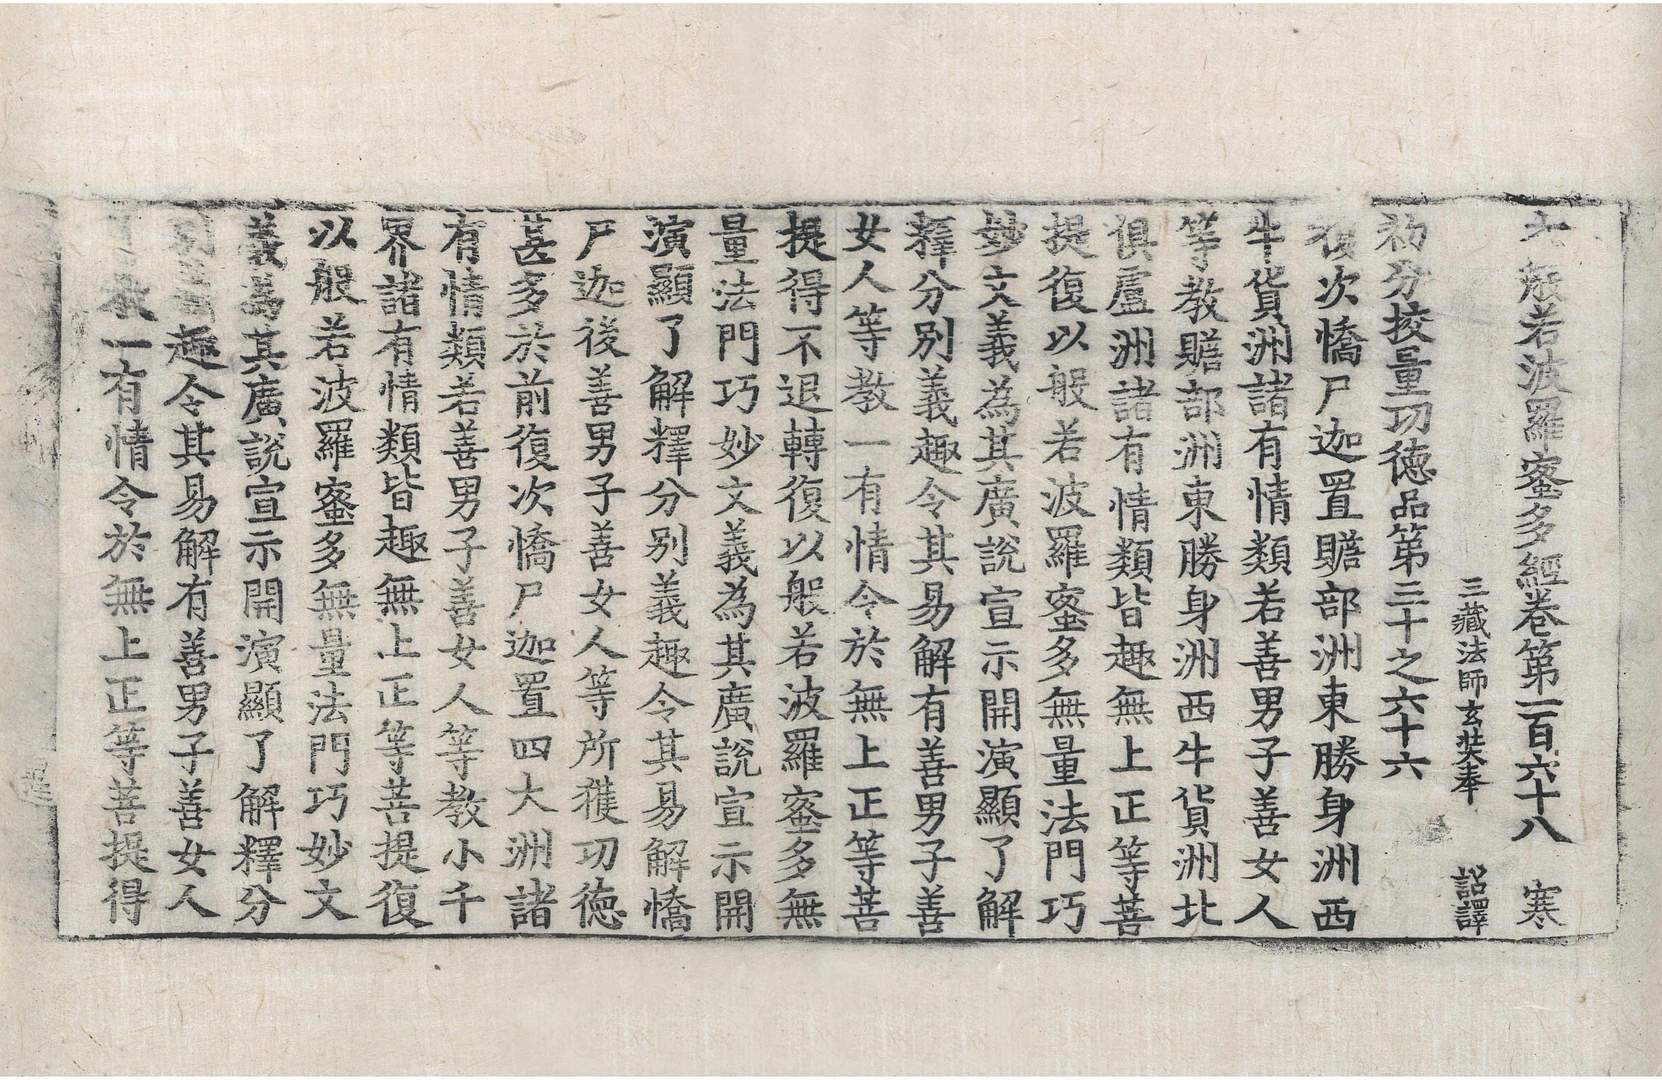 大般若波羅蜜多經卷第一百六十八 寒
三藏法師玄奘奉 詔譯
初分挍量功德品第三十之六十六
復次憍尸迦置贍部洲東勝身洲西
牛貨洲諸有情類若善男子善女人
等教贍部洲東勝身洲西牛貨洲北
俱盧洲諸有情類皆趣無上正等菩
提復以般若波羅蜜多無量法門巧
妙文義為其廣說宣示開演顯了解
釋分別義趣令其易解有善男子善
女人等教一有情令於無上正等菩
提得不退轉復以般若波羅蜜多無
量法門巧妙文義為其廣說宣示開
演顯了解釋分別義趣令其易解憍
尸迦後善男子善女人等所獲功德
甚多於前復次憍尸迦置四大洲諸
有情類若善男子善女人等教小千
界諸有情類皆趣無上正等菩提復
以般若波羅蜜多無量法門巧妙文
義為其廣說宣示開演顯了解釋分
趣令其易解有善男子善女人
教一有情令於無上正等菩提得